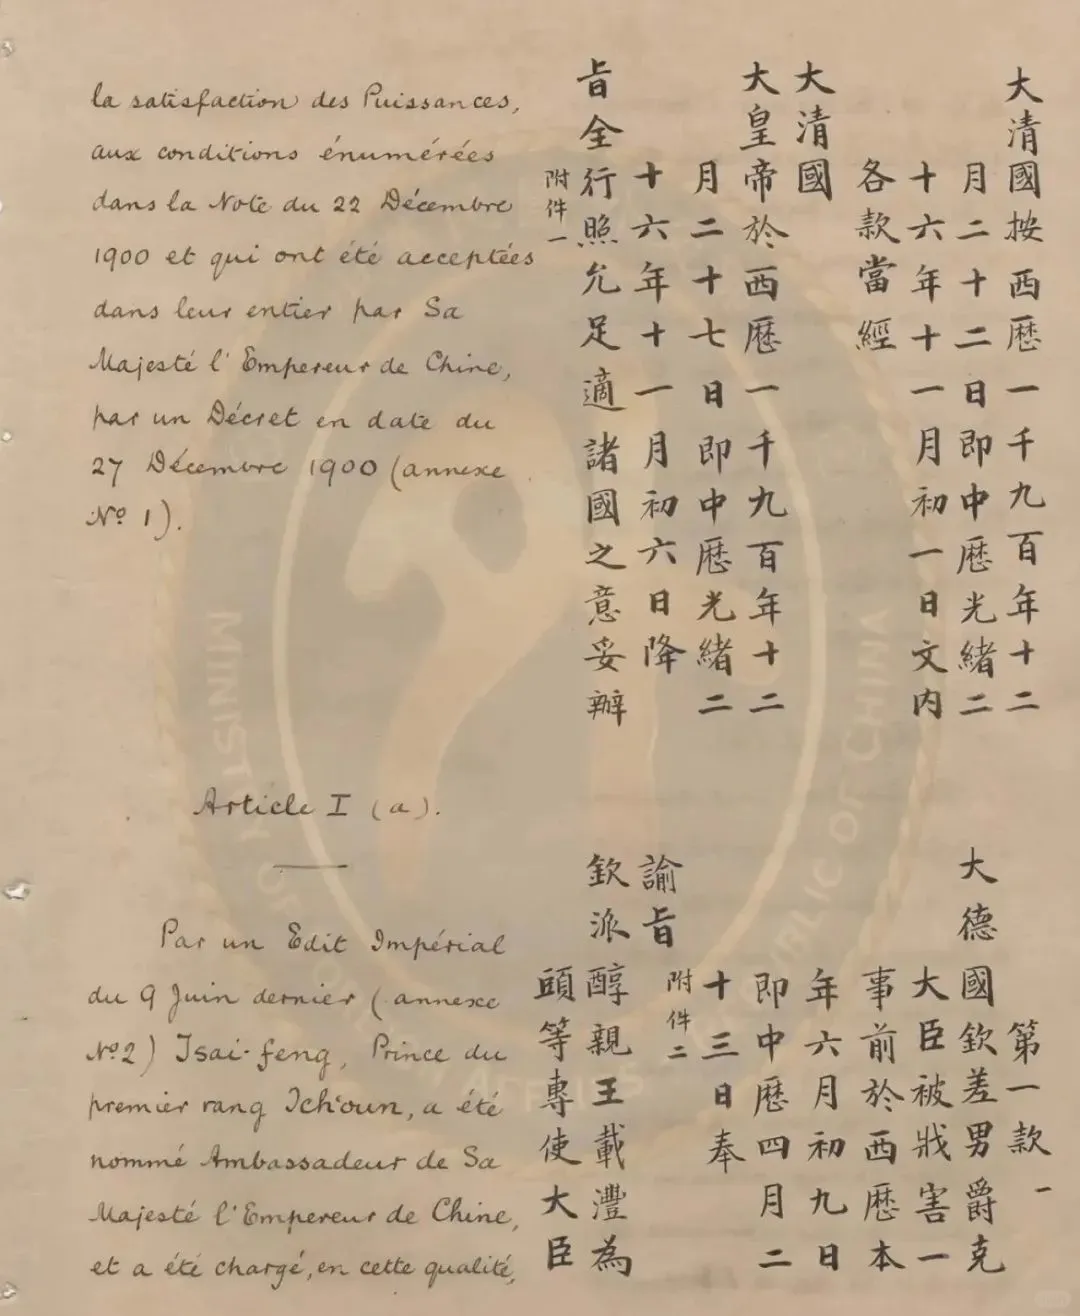 la satisfaction des Puissances,
aux conditions énumérées
dans la Note du 22 Décembre
1900 et qui ont été acceptées
dans leur entier par Sa
Majesté l'Empereur de Chine,
par un Décret en date du
27 Décembre 1900 (annexe
Nº 1).
Article I (a).
Par un Edit Impérial
du 9 Juin dernier (annexe
Nº2) Tsai-feng, Prince du
premier rang Tch'oun, a été
nommé Ambassadeur de Sa
Majesté l'Empereur de Chine,
et a été chargé, en cette qualité,
大清國按西厯一千九百年十二
月二十二日即中厯光緒二
十六年十一月初一日文内
各款當經
大清國
大皇帝於西厯一千九百年十二
月二十七日即中厯光緒二
十六年十一月初六日降
旨全行照允足適諸國之意妥辦
附件一
第一款 一
大德國欽差男爵克
大臣被戕害一
事前於西厯本
年六月初九日
即中厯四月二
十三日奉
諭旨 附件二
欽派醇親王載灃為
頭等專使大臣
MINIST
OF
AFFAIRS
BLIC OF CHINA